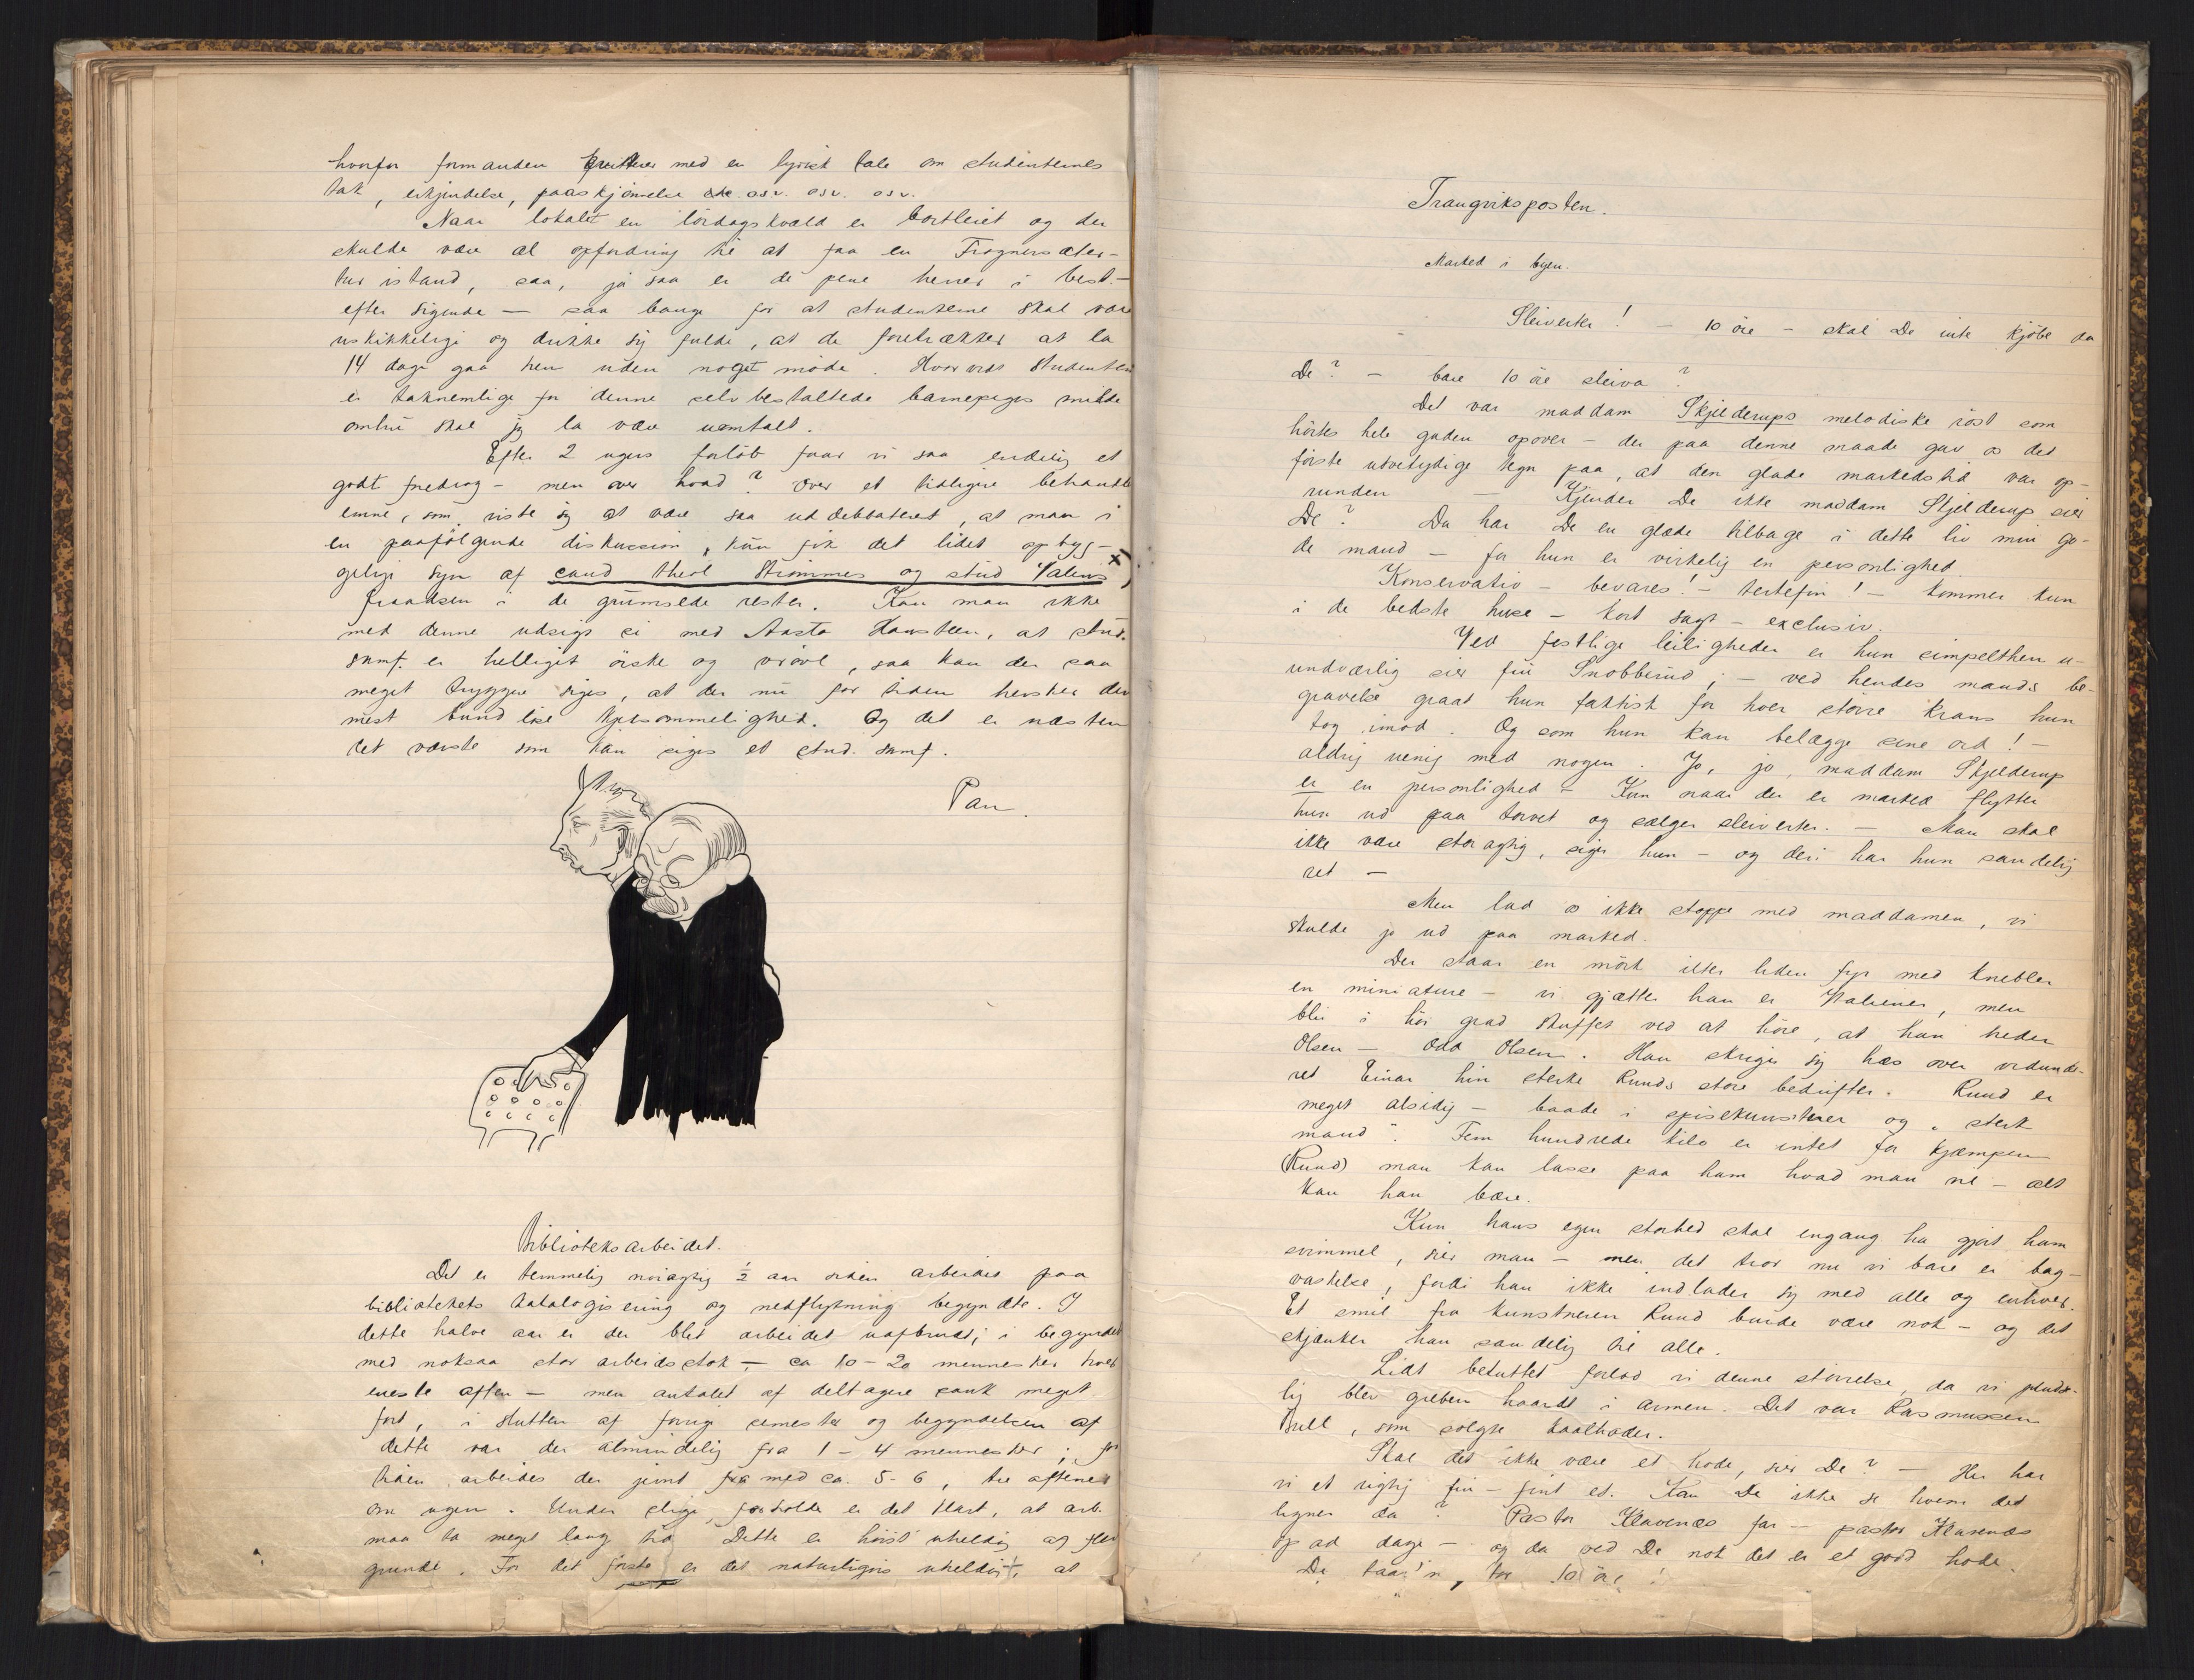 hvorfor formanden kvitterer med en lyrisk tale om studenternes
tak, erkjendelse, paaskjønnelse osv. osv. osv.
Naar lokalet en lördagskvæld er bortleiet og der
skulde være al opfordring til at faa en Frognersæter-
tur istand, saa, ja saa er de pene herrer i best.-
efter sigende — saa bange for at studenterne skal være
uskikkelige og drikke sig fulde, at de foretrækker at la
14 dage gaa hen uden noget möde. Hvorvidt studenten
er taknemlige for denne selvbestaltede barnepiges milde
omhu skal jeg la være uomtalt.
Efter 2 ugers forløb faar vi saa endelig et
godt foredrag - men over hvad? Over et tidligere behandlet
emne, som viste sig at være saa uddebbateret, at man i
en paafölgende diskussion, kun fik det lidet opbyg-
gelige syn af cand theol Strømmes og stud Valens
fraadsen i de grumsede rester. Kan man ikke
med denne udsigt si med Aasta Hansteen, at stud.
samf. er helliget örske og vröol, saa kan der saa
meget tryggere siges, at der nu for tiden hersker den
mest bundlöse kjedsommelighed. Og det er næsten
det værste som kan siges et stud. samf.
Pan.
Biblioteksarbeidet.
Det er temmelig nøiagtig ½ aar siden arbeidet paa
bibliotekets katalogisering og nedflytning begyndte. I
dette halve aar er der blet arbeidet uafbrudt; i begyndel
med noksaa stor arbeidsstok — ca 10 - 20 mennesker hver
eneste aften — men antalet af deltagere sank meget
fort, i slutten af forrige semester og begyndelsen af
dette var der almindelig fra 1 - 4 mennesker; for
tiden arbeides der jevnt med ca. 5 - 6, tre aftener
om ugen. Under slige forholde er det klart, at arb.
maa ta meget lang tid. Dette er höist uheldig af flere
grunde. For det förste er det naturligvis uheldigt, at
Trangviksposten.
Marked i byen.
Sleiverter! - 10 öre - skal De inte kjöbe da
De? - bare 10 öre sleiva?
Det var maddam Skjelderups melodiske röst som
hörtes hele gaden opover - der paa denne maade gav os det
förste utvetydige tegn paa, at den glade markedstid var op-
runden — Kjender De ikke maddam Skjelderup sier
De? Da har De en glæde tilbage i dette liv min go-
de mand - for hun er virkelig en personlighed.
Konservativ - bevares! - tertefin! - kommer kun
i de bedste huse - kort sagt - exclusiv.
Ved festlige leiligheder er hun simpelthen u-
undværlig sier frü Snobberud; - ved hendes mands be-
gravelse graat hun faktisk for hver större krans hun
tog imod. Og som hun kan belægge sine ord! -
aldrig uenig med nogen. Jo, jo, maddam Skjelderup
er en personlighed - Kun naar der er marked flytter
hun ud paa torvet og sælger sleiverter. - Man skal
ikke være storagtig, siger hun - og deri har hun sandelig
ret -
Men lad os ikke stoppe med maddamen, vi
skulde jo ud paa marked.
Der staar en mörk ilter liden fyr med knebler
en miniature - vi gjætter han er Italiener, men
blir i höi grad skuffet ved at höre, at han heder
Olsen - Odd Olsen. Han skriger sig hæs over vidunde-
ret Einar hin sterke Ruuds store bedrifter. Ruud er
meget alsidig - baade i spisekunstner og „sterk
mand". Fem hundrede kilo er intet for kjæmpen
(Ruud) man kan lasse paa ham hvad man vil - alt
kan han bære.
Kun hans egen storhed skal engang ha gjort ham
svimmel, sier man - men det tror nu vi bare er bag-
vaskelse, fordi han ikke indlader sig med alle og enhver.
Et smil fra kunstneren Ruud burde være nok - og det
skjænker han sandelig til alle.
Lidt betuttet forlod vi denne störrelse, da vi pluds-
lig blev greben haardt i armen. Det var Rasmussen
Bull, som solgte kaalhoder.
Skal det ikke være et hode, sier De? - Her har
vi et rigtig fin-fint et. Kan De ikke se hvem det
ligner da? Pastor Klavenæs far - pastor Klavenæs
op ad dage - og da ved De nok det er et godt hode.
De faar'n, for 10 öre!